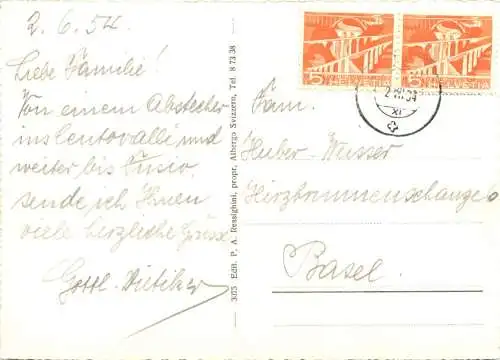 2.6.54.
Liebe Familie!
Von einem Abstecher
ins Centovalli und
weiter bis Fusio
sende ich Ihnen
viele herzliche Grüsse
Gottl. Dietiker
3075 Edit. P. A. Ressighini, propr. Albergo Svizzero, Tel. 8 73 38
5 HELVETIA
5 HELVETIA
XI
Fam.
Huber-Musser
Hirzbrunnenschanze 6
Basel